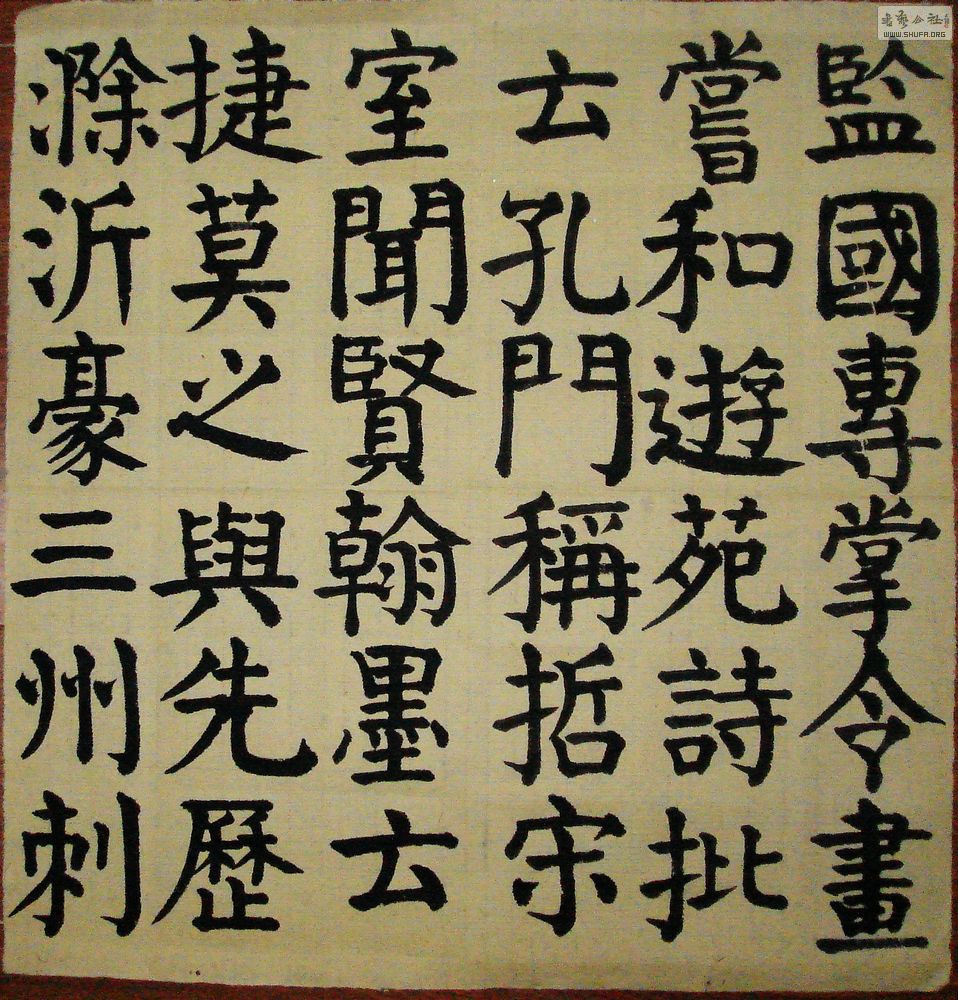 監國專掌令畫
嘗和遊苑詩批
云孔門稱哲宋
室聞賢翰墨云
捷莫之與先歷
滁沂豪三州刺
书艺公社
WWW.SHUFA.ORG